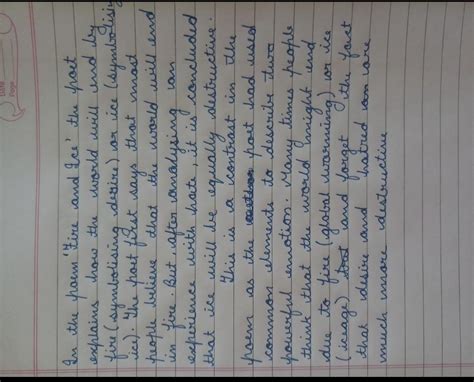 In the poem 'Fire and Ice' the poet
explains how the world will end by
fire (symbolising desire) or ice (symbolising
ice). The poet first says that most
people believe that the world will end
in fire. But, after analysing own
experience with hate, it is concluded
that ice will be equally destructive.
This is a contrast in the
poem as the poet had used
common elements to describe two
powerful emotion. Many times people
think that the world might end
due to fire (global warming) or ice
(iceage) and forget the fact
that desire and hatred can are
much more destructive
Page